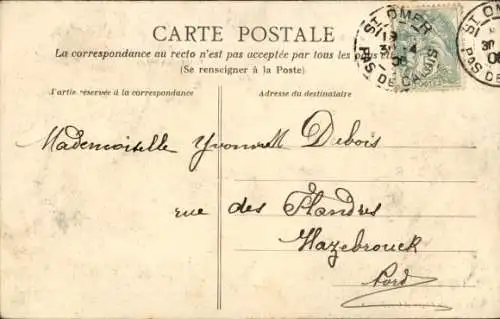 CARTE POSTALE
La correspondance au recto n'est pas acceptée par tous les pays
(Se renseigner à la Poste)
Partie réservée à la correspondance
Adresse du destinataire
Mademoiselle Yvonne Debois
rue des Flandres
Hazebrouck
Nord
ST OMER
30 -4
PAS DE CALAIS
ST OM
30
PAS DE